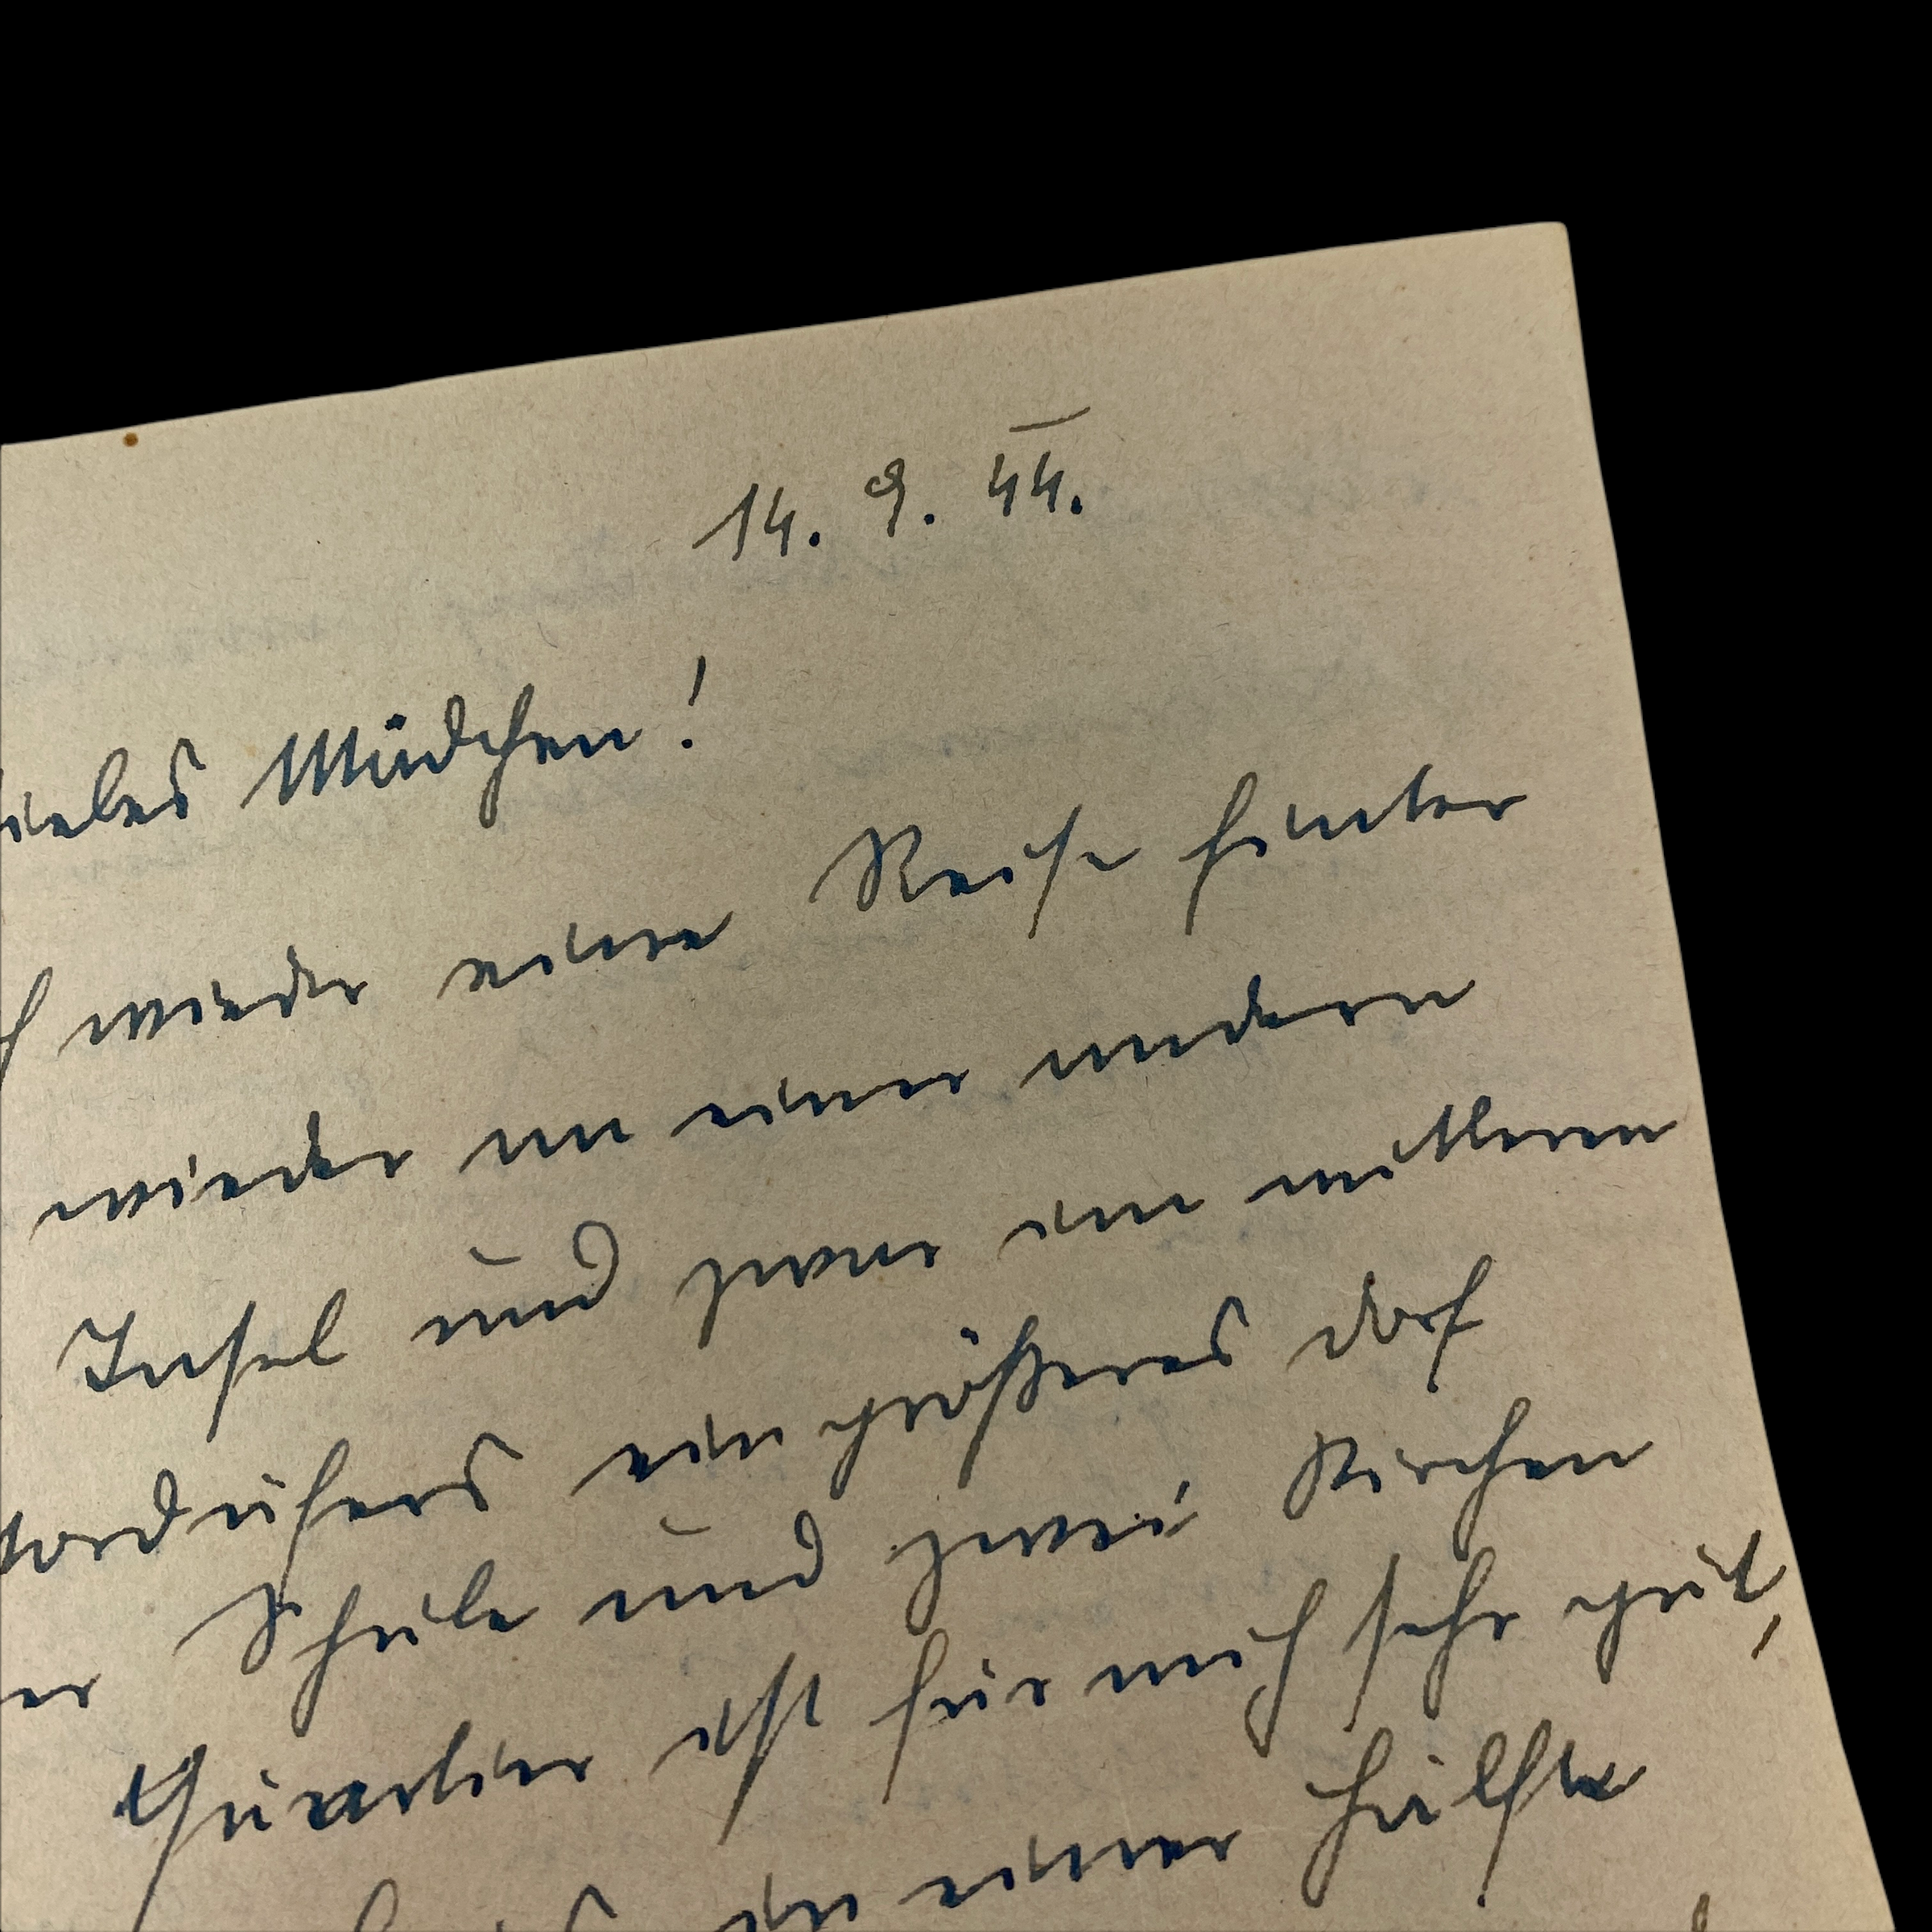 14. 9. 44.
iebes Mädchen!
h wieder eine Reise hinter
wieder an einer andern
Insel und zwar am mittleren
Nordufers ein größeres Dorf
er Schule und zwei Kirchen
Quartier ist für mich sehr gut,
in einer Hälfte